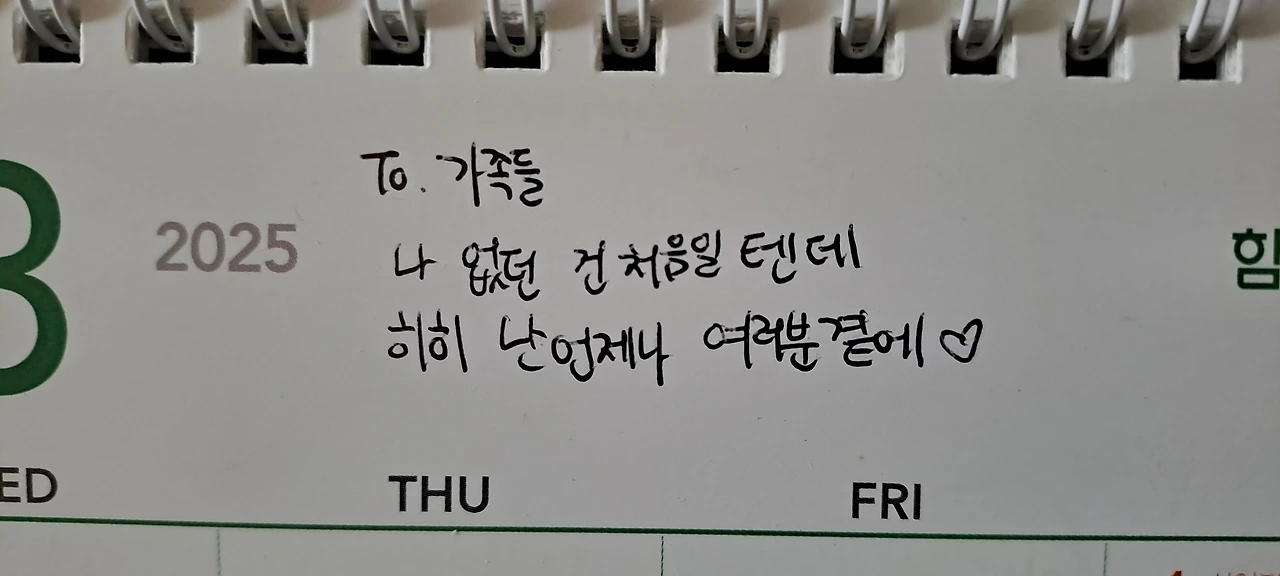 To. 가족들
2025
나 없던 건 처음일 텐데
함
히히 난 언제나 여러분 곁에♡
ED THU FRI